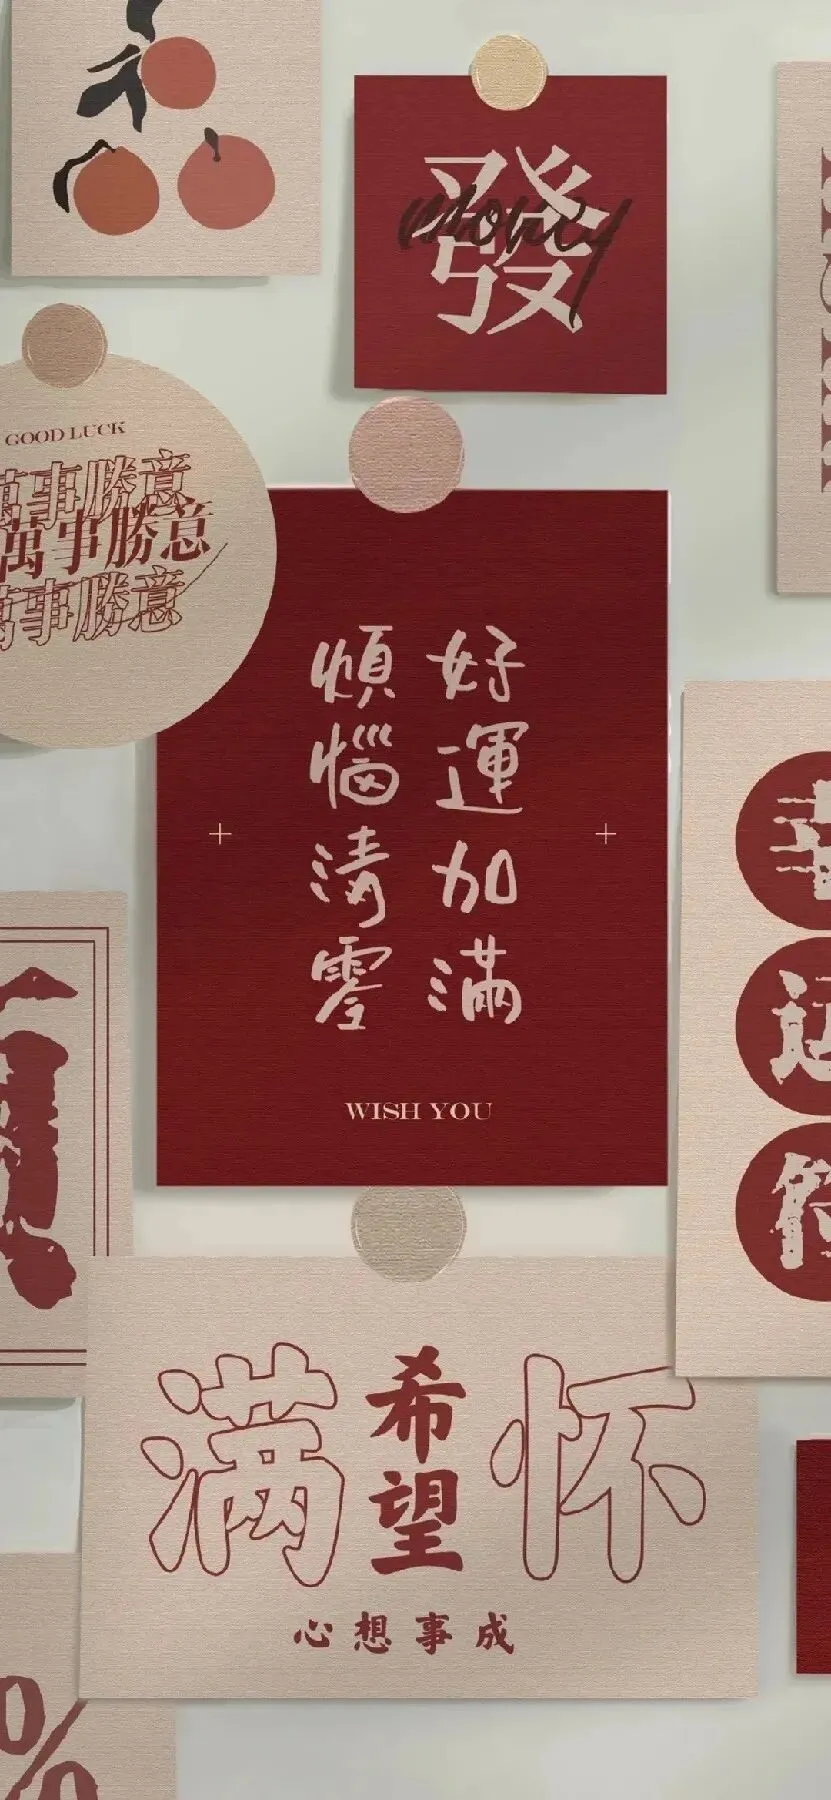 發
money
GOOD LUCK
萬事勝意
萬事勝意
萬事勝意
好運加滿
煩惱清零
WISH YOU
满怀
希望
心想事成
%